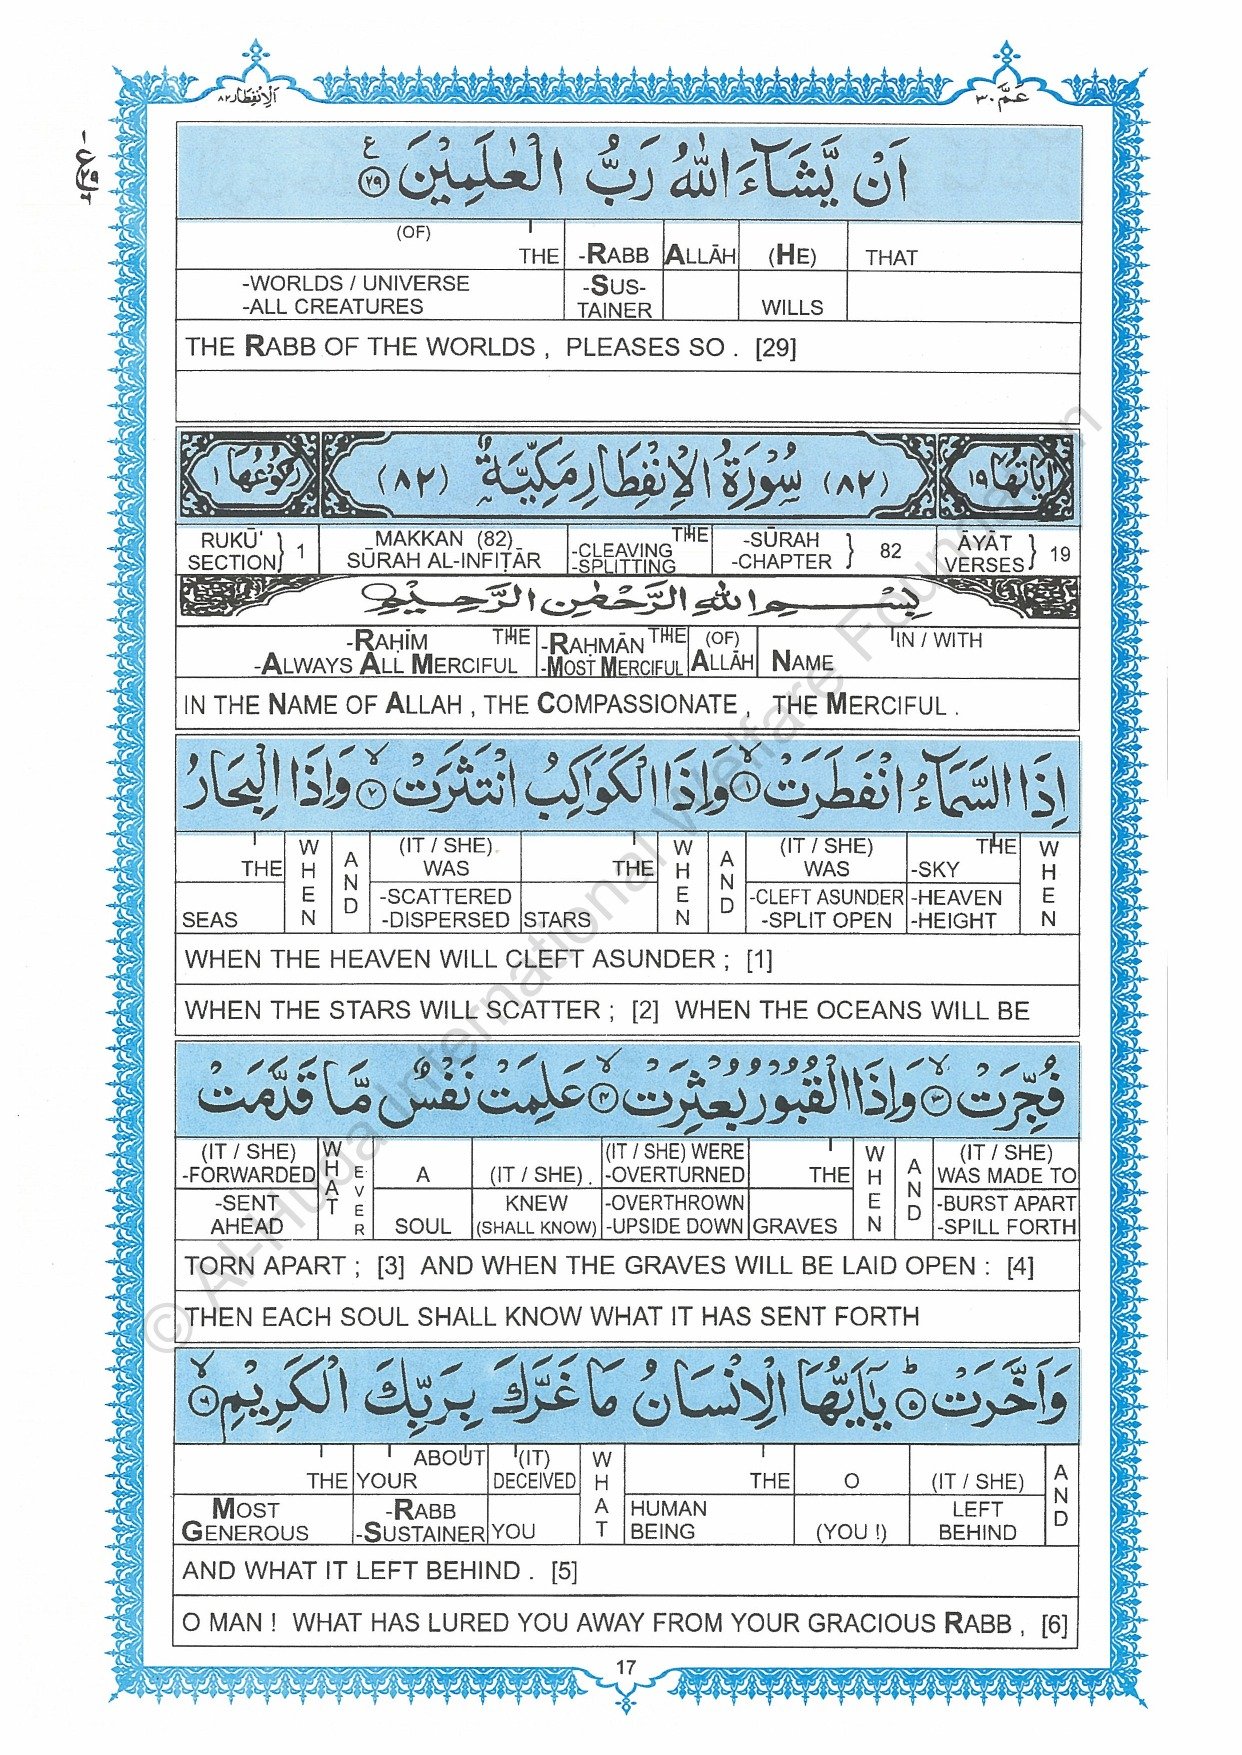 اَلْاِنْفِطَار ٨٢
عَمَّ ٣٠
اَنْ يَّشَآءَ اللّٰهُ رَبُّ الْعٰلَمِيْنَ ﴿٢٩﴾ ع
(OF) THE -RABB ALLĀH (HE) THAT
-WORLDS / UNIVERSE -SUS- WILLS
-ALL CREATURES TAINER
THE RABB OF THE WORLDS , PLEASES SO . [29]
اٰيَاتُهَا ١٩ (٨٢) سُوْرَةُ الْاِنْفِطَارِ مَكِّيَّةٌ (٨٢) رُكُوْعُهَا ١
RUKŪ' MAKKAN (82) THE -SŪRAH ĀYĀT
SECTION } 1 SŪRAH AL-INFIṬĀR -CLEAVING -CHAPTER } 82 VERSES } 19
-SPLITTING
بِسْمِ اللهِ الرَّحْمٰنِ الرَّحِيْمِ
-RAḤĪM THE -RAḤMĀN THE (OF) IN / WITH
-ALWAYS ALL MERCIFUL -MOST MERCIFUL ALLĀH NAME
IN THE NAME OF ALLAH , THE COMPASSIONATE , THE MERCIFUL .
اِذَا السَّمَآءُ انْفَطَرَتْ ﴿١﴾ وَاِذَا الْكَوَاكِبُ انْتَثَرَتْ ﴿٢﴾ وَاِذَا الْبِحَارُ
THE WHEN AND (IT / SHE) WAS THE WHEN AND (IT / SHE) WAS THE -SKY WHEN
SEAS -SCATTERED -DISPERSED STARS -CLEFT ASUNDER -SPLIT OPEN -HEAVEN -HEIGHT
WHEN THE HEAVEN WILL CLEFT ASUNDER ; [1]
WHEN THE STARS WILL SCATTER ; [2] WHEN THE OCEANS WILL BE
فُجِّرَتْ ﴿٣﴾ وَاِذَا الْقُبُوْرُ بُعْثِرَتْ ﴿٤﴾ عَلِمَتْ نَفْسٌ مَّا قَدَّمَتْ
(IT / SHE) -FORWARDED WHAT EVER A (IT / SHE) . (IT / SHE) WERE -OVERTURNED THE WHEN AND (IT / SHE) WAS MADE TO
-SENT AHEAD SOUL KNEW (SHALL KNOW) -OVERTHROWN -UPSIDE DOWN GRAVES -BURST APART -SPILL FORTH
TORN APART ; [3] AND WHEN THE GRAVES WILL BE LAID OPEN : [4]
THEN EACH SOUL SHALL KNOW WHAT IT HAS SENT FORTH
وَاَخَّرَتْ ﴿٥﴾ يٰٓاَيُّهَا الْاِنْسَانُ مَا غَرَّكَ بِرَبِّكَ الْكَرِيْمِ ﴿٦﴾
THE ABOUT YOUR (IT) DECEIVED WHAT THE O (IT / SHE) AND
MOST GENEROUS -RABB -SUSTAINER YOU HUMAN BEING (YOU !) LEFT BEHIND
AND WHAT IT LEFT BEHIND . [5]
O MAN ! WHAT HAS LURED YOU AWAY FROM YOUR GRACIOUS RABB , [6]
17
© Al-Huda International Welfare Foundation